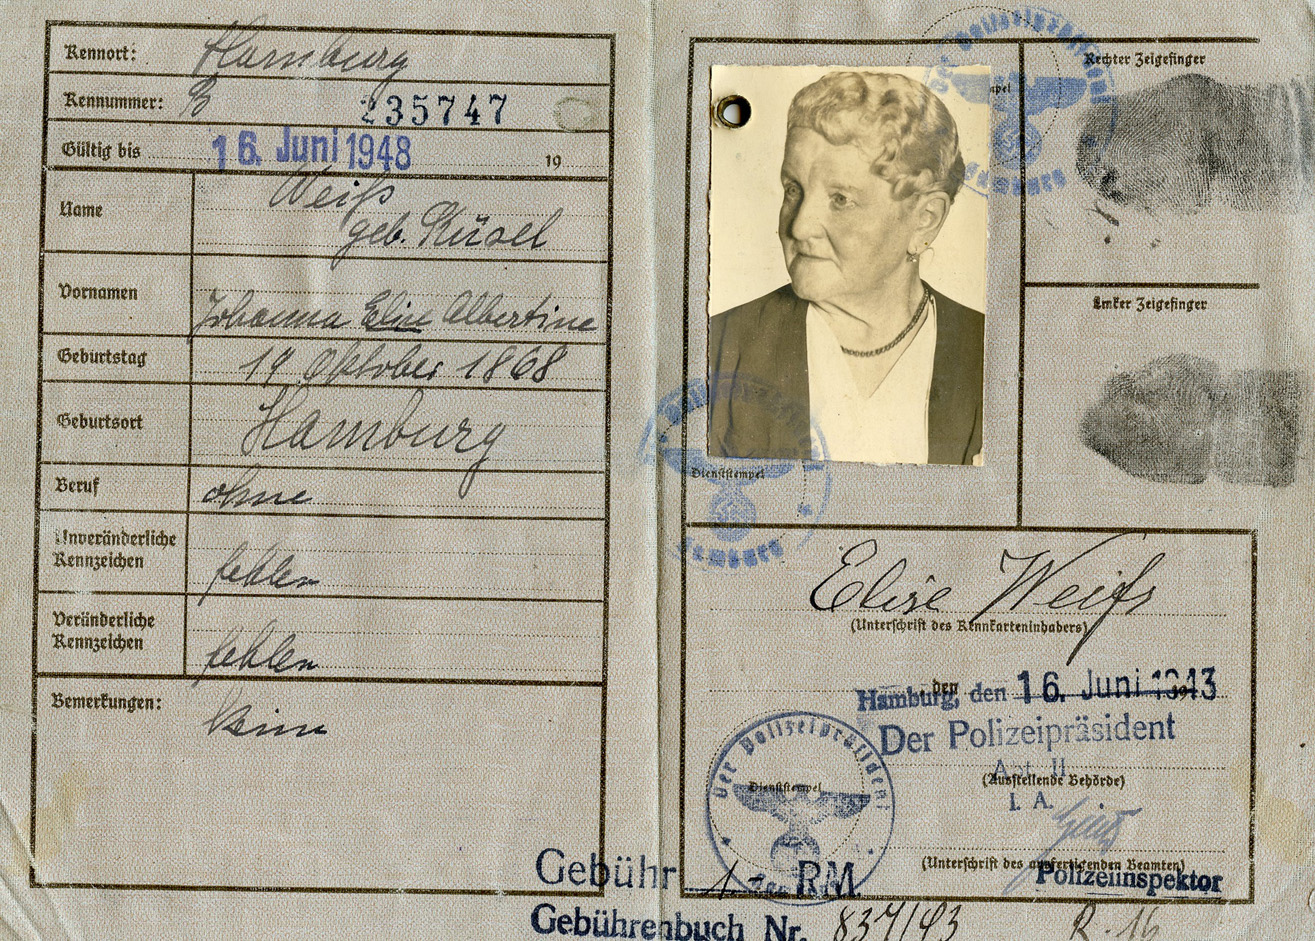 Kennort: Hamburg
Kennummer: B 235747
Gültig bis 16. Juni 1948 19
Name Weiß
geb. Küsel
Vornamen Johanna Elise Albertine
Geburtstag 19 Oktober 1868
Geburtsort Hamburg
Beruf ohne
Unveränderliche
Kennzeichen fehlen
Veränderliche
Kennzeichen fehlen
Bemerkungen: Keine
Der Polizeipräsident
Hamburg
Rechter Zeigefinger
Linker Zeigefinger
Dienststempel
Hamburg
Elise Weiß
(Unterschrift des Kennkarteninhabers)
Hamburg, den 16. Juni 1943
Der Polizeipräsident
Abt. II
(Ausstellende Behörde)
I. A.
Der Polizeipräsident
Dienststempel
(Unterschrift des ausfertigenden Beamten)
Polizeiinspektor
Gebühr 1.- RM
Gebührenbuch Nr. 837/43 R. 16